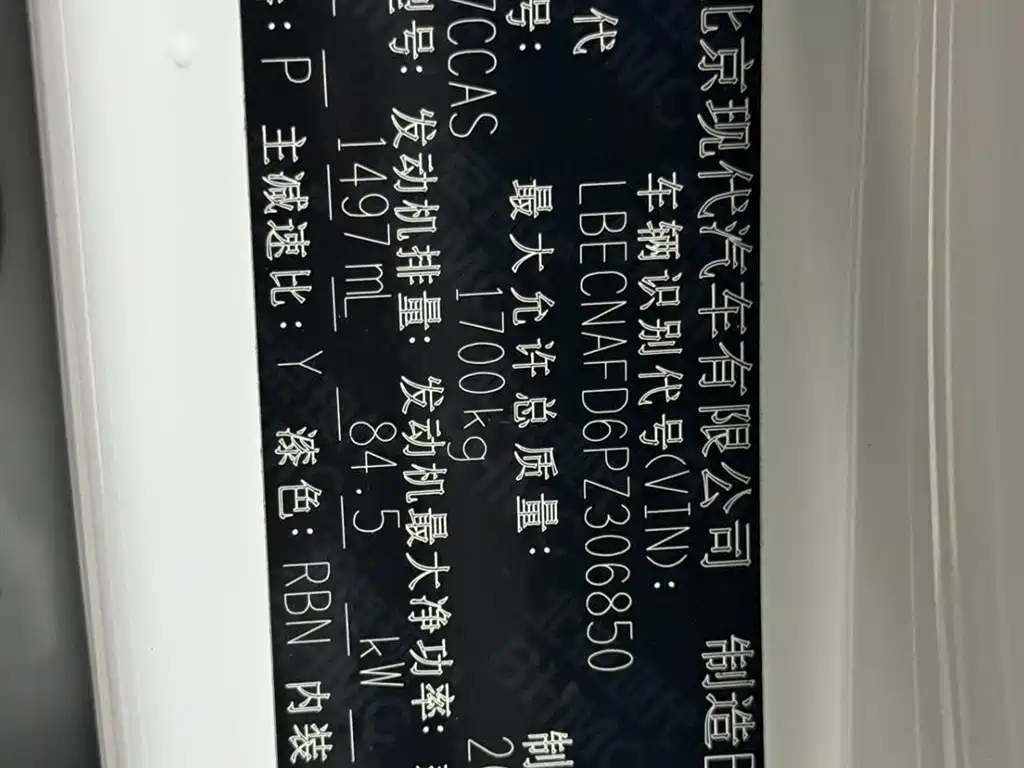 北京现代汽车有限公司 制造
车辆识别代号(VIN):
代 LBECNAFD6PZ306850
号: 最大允许总质量: 制
7CCAS 1700kg 2
型号: 发动机排量: 发动机最大净功率:
1497mL 84.5 kW
: P 主减速比: Y 漆色: RBN 内装